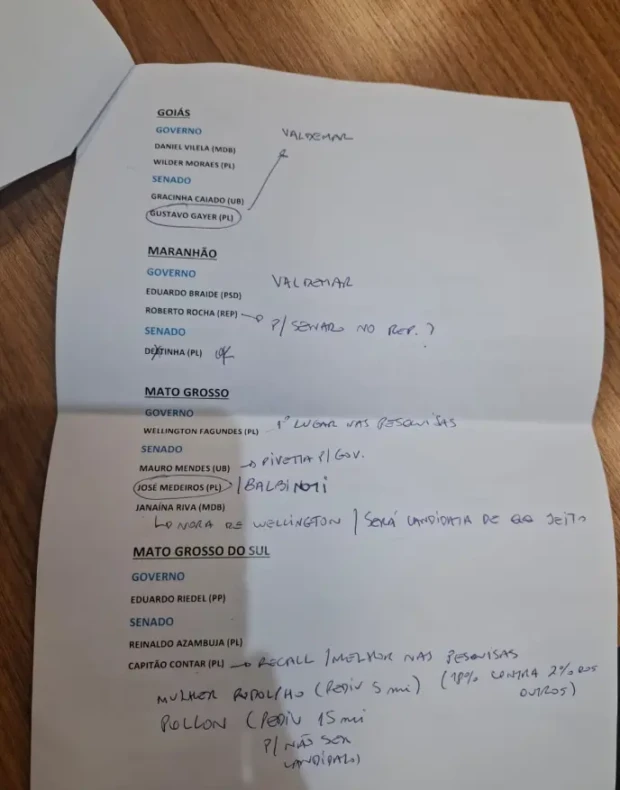 GOIÁS
GOVERNO
VALDEMAR
DANIEL VILELA (MDB)
WILDER MORAES (PL)
SENADO
GRACINHA CAIADO (UB)
GUSTAVO GAYER (PL)
MARANHÃO
GOVERNO
VALDEMAR
EDUARDO BRAIDE (PSD)
ROBERTO ROCHA (REP) P/ SENADO NO REP.?
SENADO
DETINHA (PL) OK
MATO GROSSO
GOVERNO
WELLINGTON FAGUNDES (PL) 1º LUGAR NAS PESQUISAS
SENADO
MAURO MENDES (UB) PIVETTA P/ GOV.
JOSÉ MEDEIROS (PL) / BALBINOTI
JANAÍNA RIVA (MDB)
NORA DE WELLINGTON / SERÁ CANDIDATA DE JEITO
MATO GROSSO DO SUL
GOVERNO
EDUARDO RIEDEL (PP)
SENADO
REINALDO AZAMBUJA (PL)
CAPITÃO CONTAR (PL) RECALL / MELHOR NAS PESQUISAS
(18% CONTRA 2% DOS OUTROS)
MULHER RODOLFHO (PEDIU 5 mi)
POLLON (PEDIU 15 mi
P/ NÃO SER
CANDIDATO)